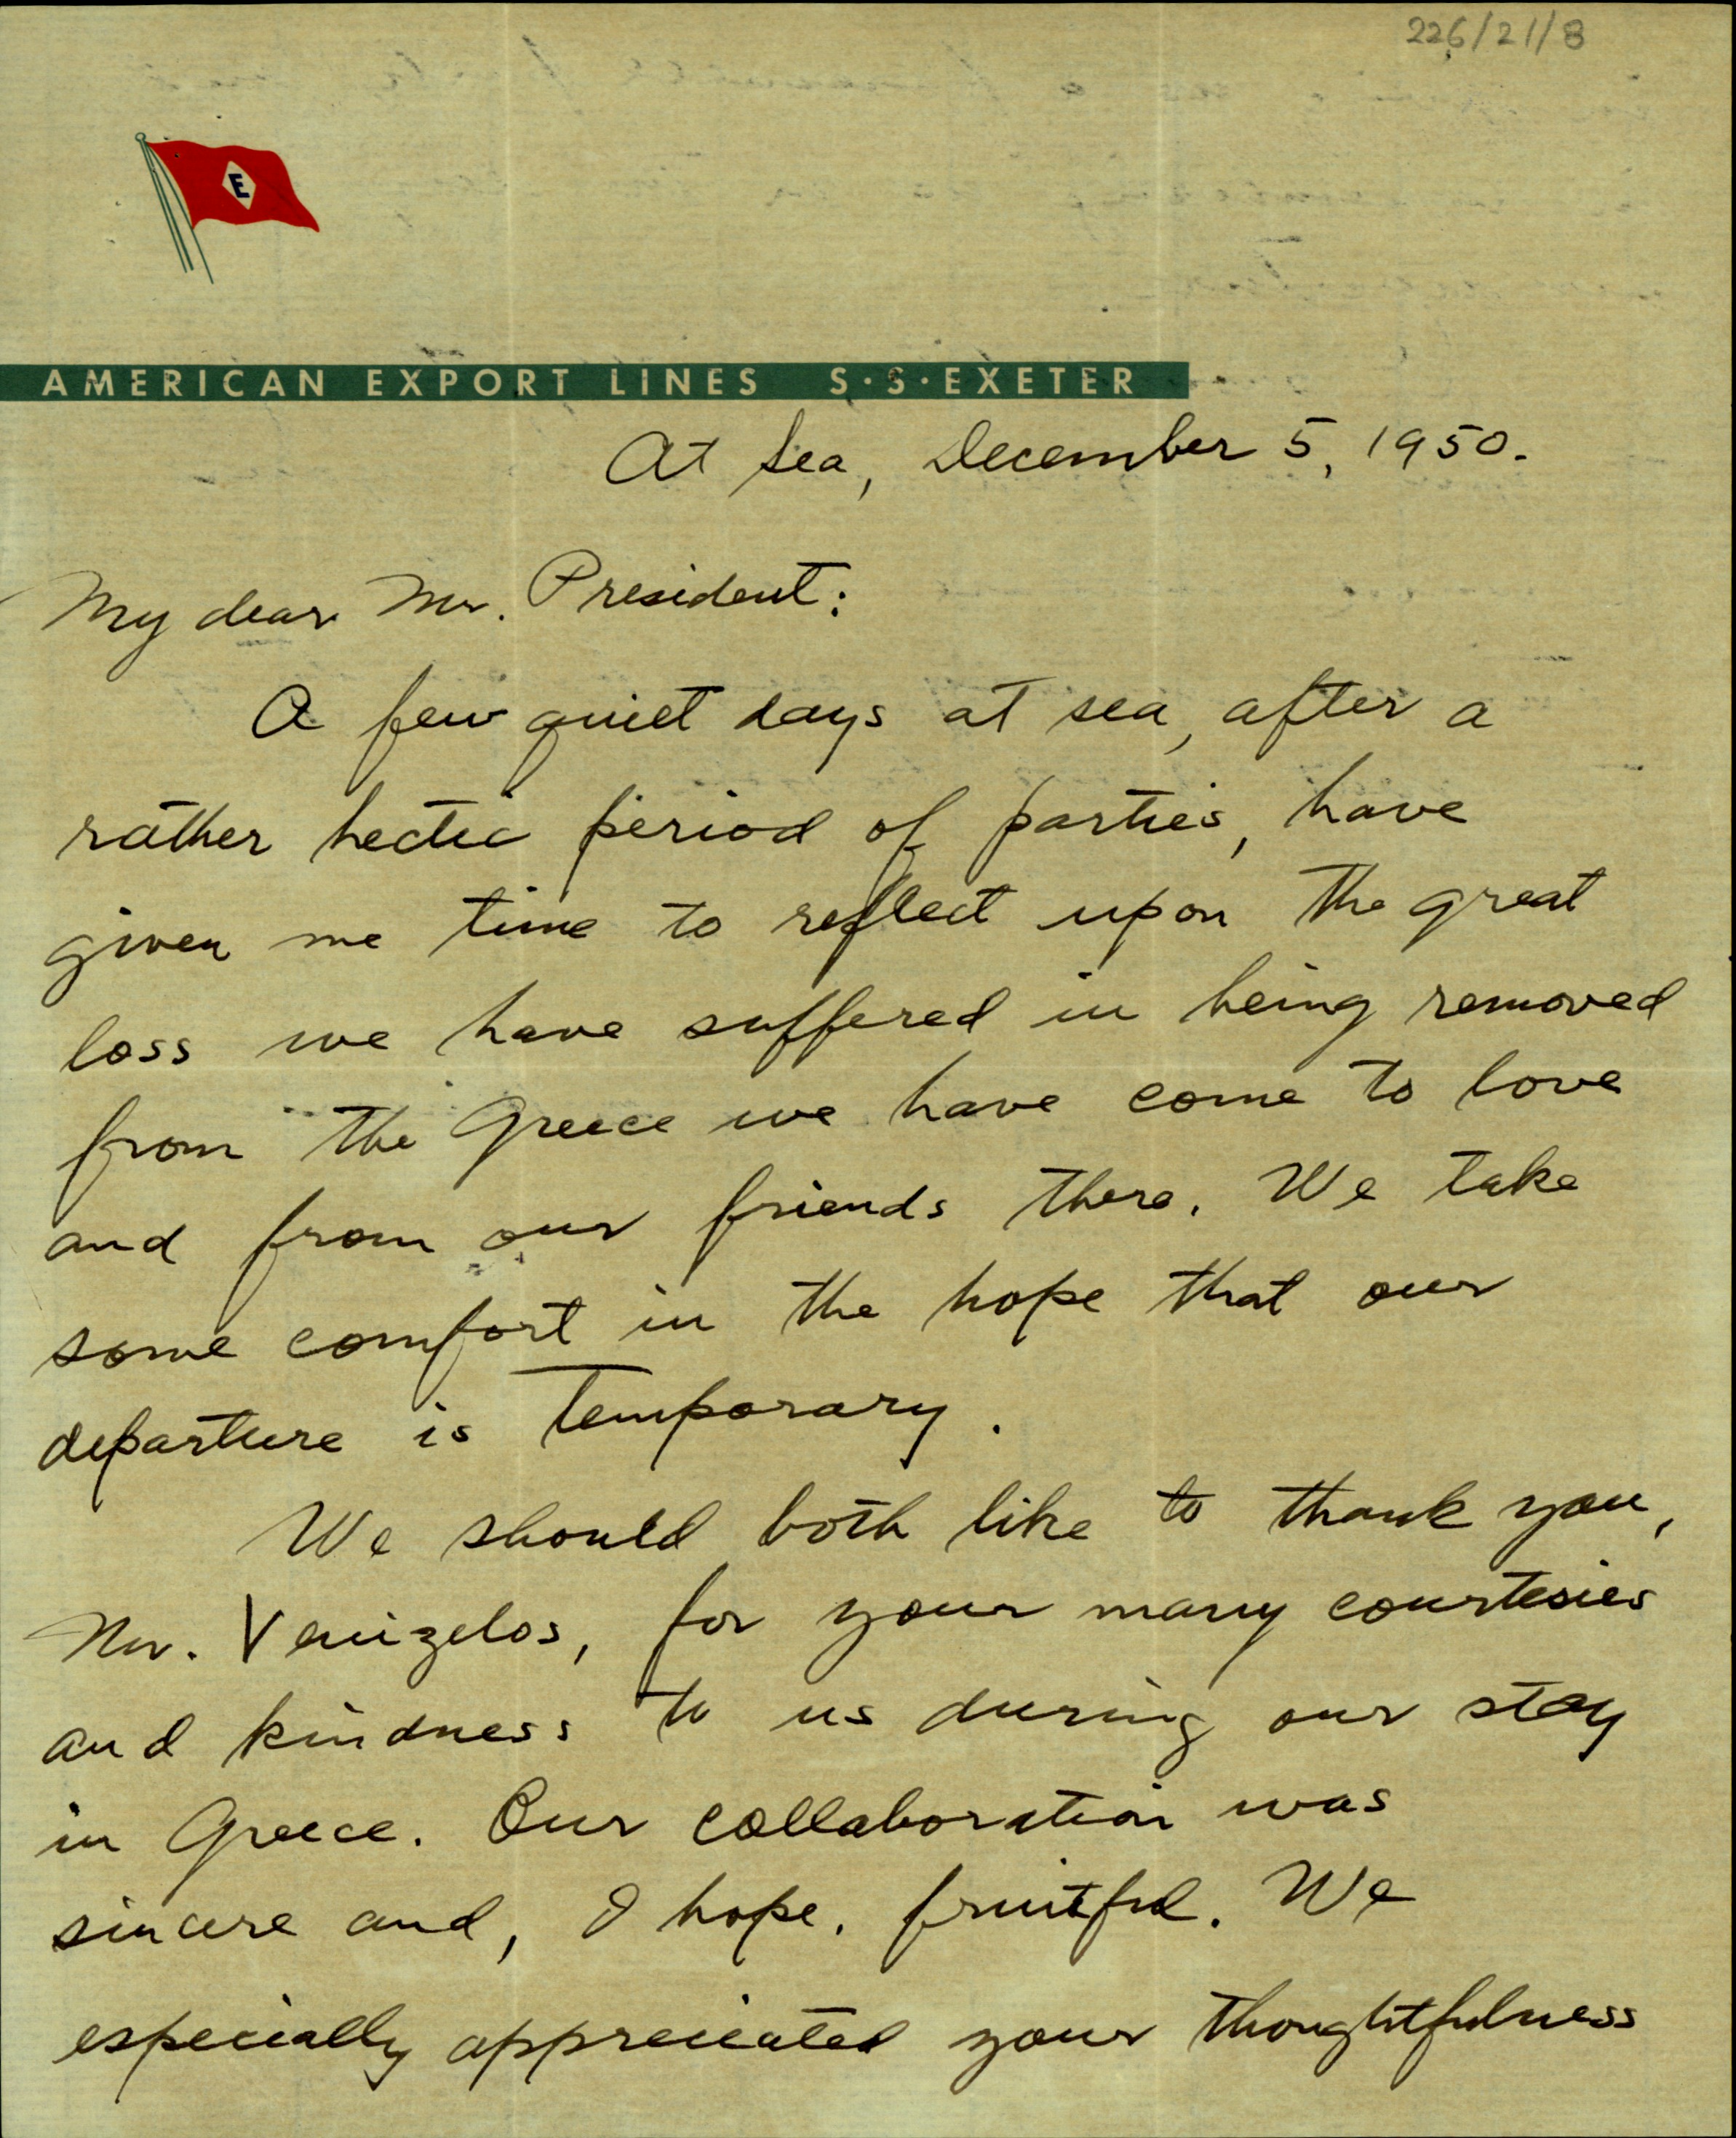 226/21/8
E
AMERICAN EXPORT LINES S·S·EXETER
At Sea, December 5, 1950.
My dear Mr. President:
A few quiet days at sea, after a
rather hectic period of parties, have
given me time to reflect upon the great
loss we have suffered in being removed
from the Greece we have come to love
and from our friends there. We take
some comfort in the hope that our
departure is temporary.
We should both like to thank you,
Mr. Venizelos, for your many courtesies
and kindness to us during our stay
in Greece. Our collaboration was
sincere and, I hope, fruitful. We
especially appreciated your thoughtfulness